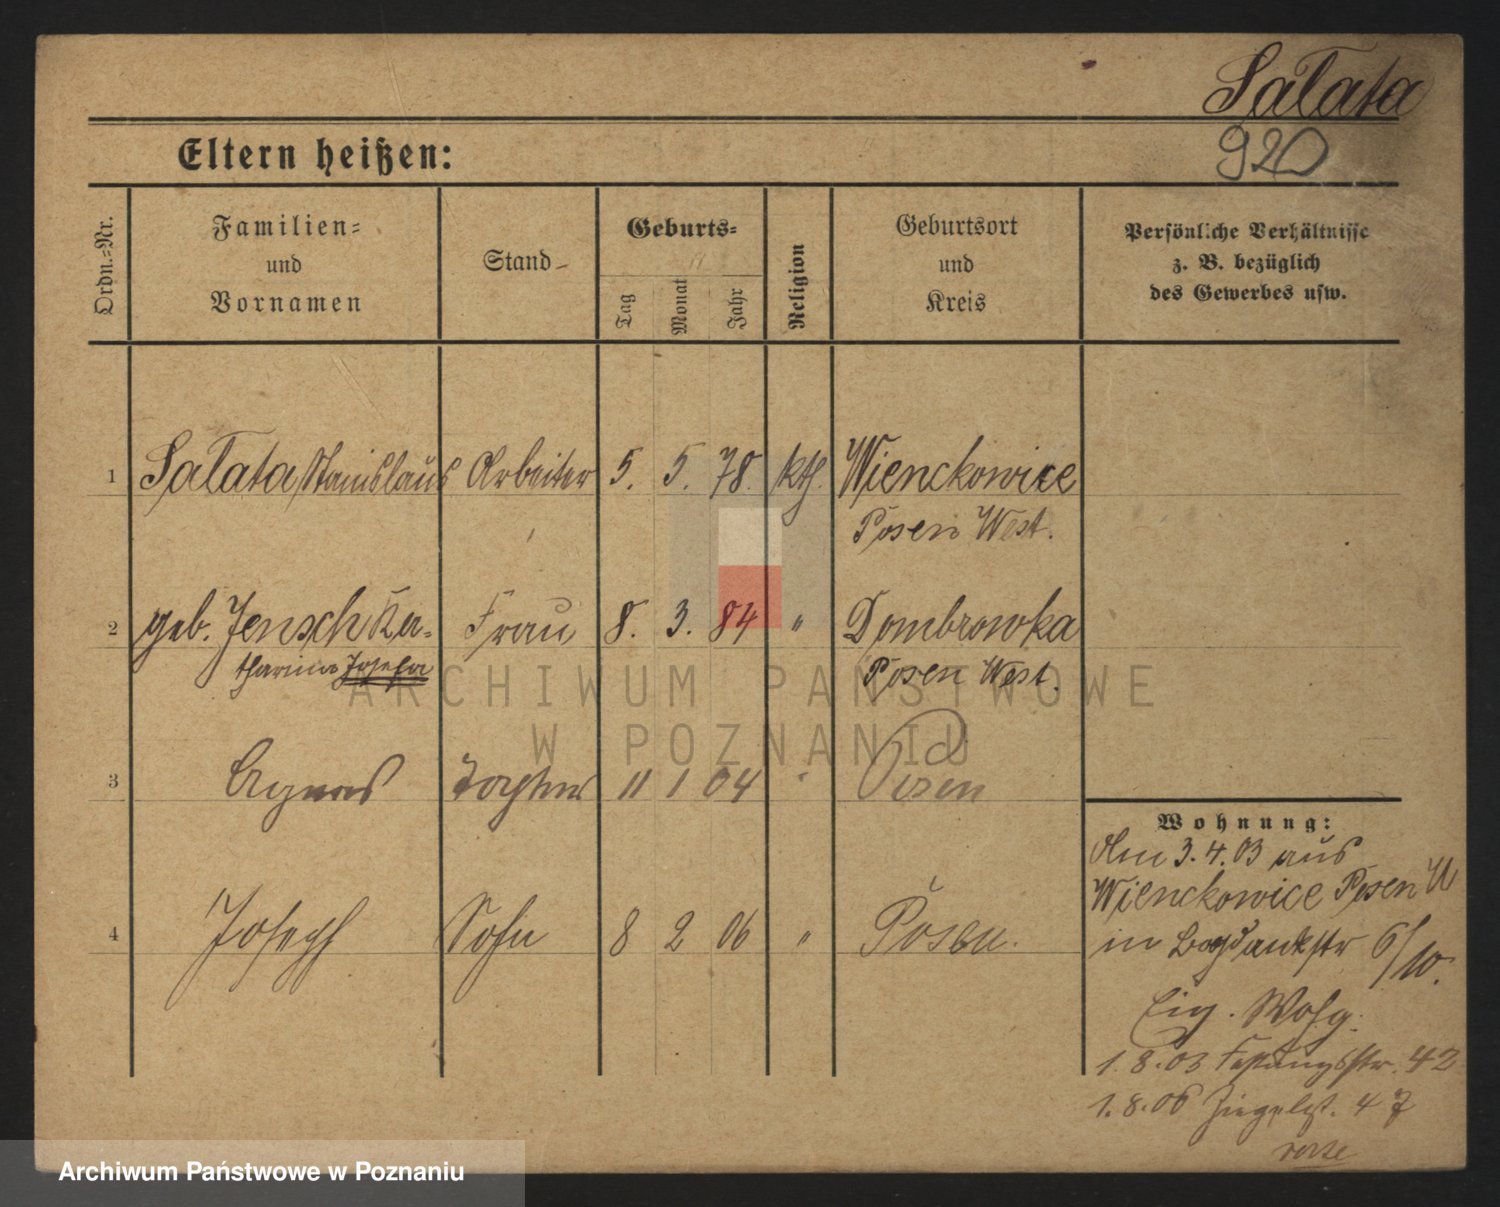 Salata
920
Eltern heißen:
Ordn.=Nr.
Familien=
und
Vornamen
Stand
Geburts=
Tag
Monat
Jahr
Religion
Geburtsort
und
Kreis
Persönliche Verhältnisse
z. B. bezüglich
des Gewerbes usw.
1 Salata Stanislaus Arbeiter 5. 5. 78. kth. Wienckowice
Posen West.
2 geb. Jensch Ka= Frau 8. 3. 84 " Dombrowka
tharina Josefa Posen West.
3 Agnes Tochter 11 1 04 " Posen
4 Joseph Sohn 8 2 06 " Posen.
Wohnung:
Am 3.4.03 aus
Wienckowice Posen W
in Bogdankstr 6/10.
Eig. Wohg.
1.8.03 Festungsstr. 42
1.8.06 47
ARCHIWUM PAŃSTWOWE
W POZNANIU
Archiwum Państwowe w Poznaniu